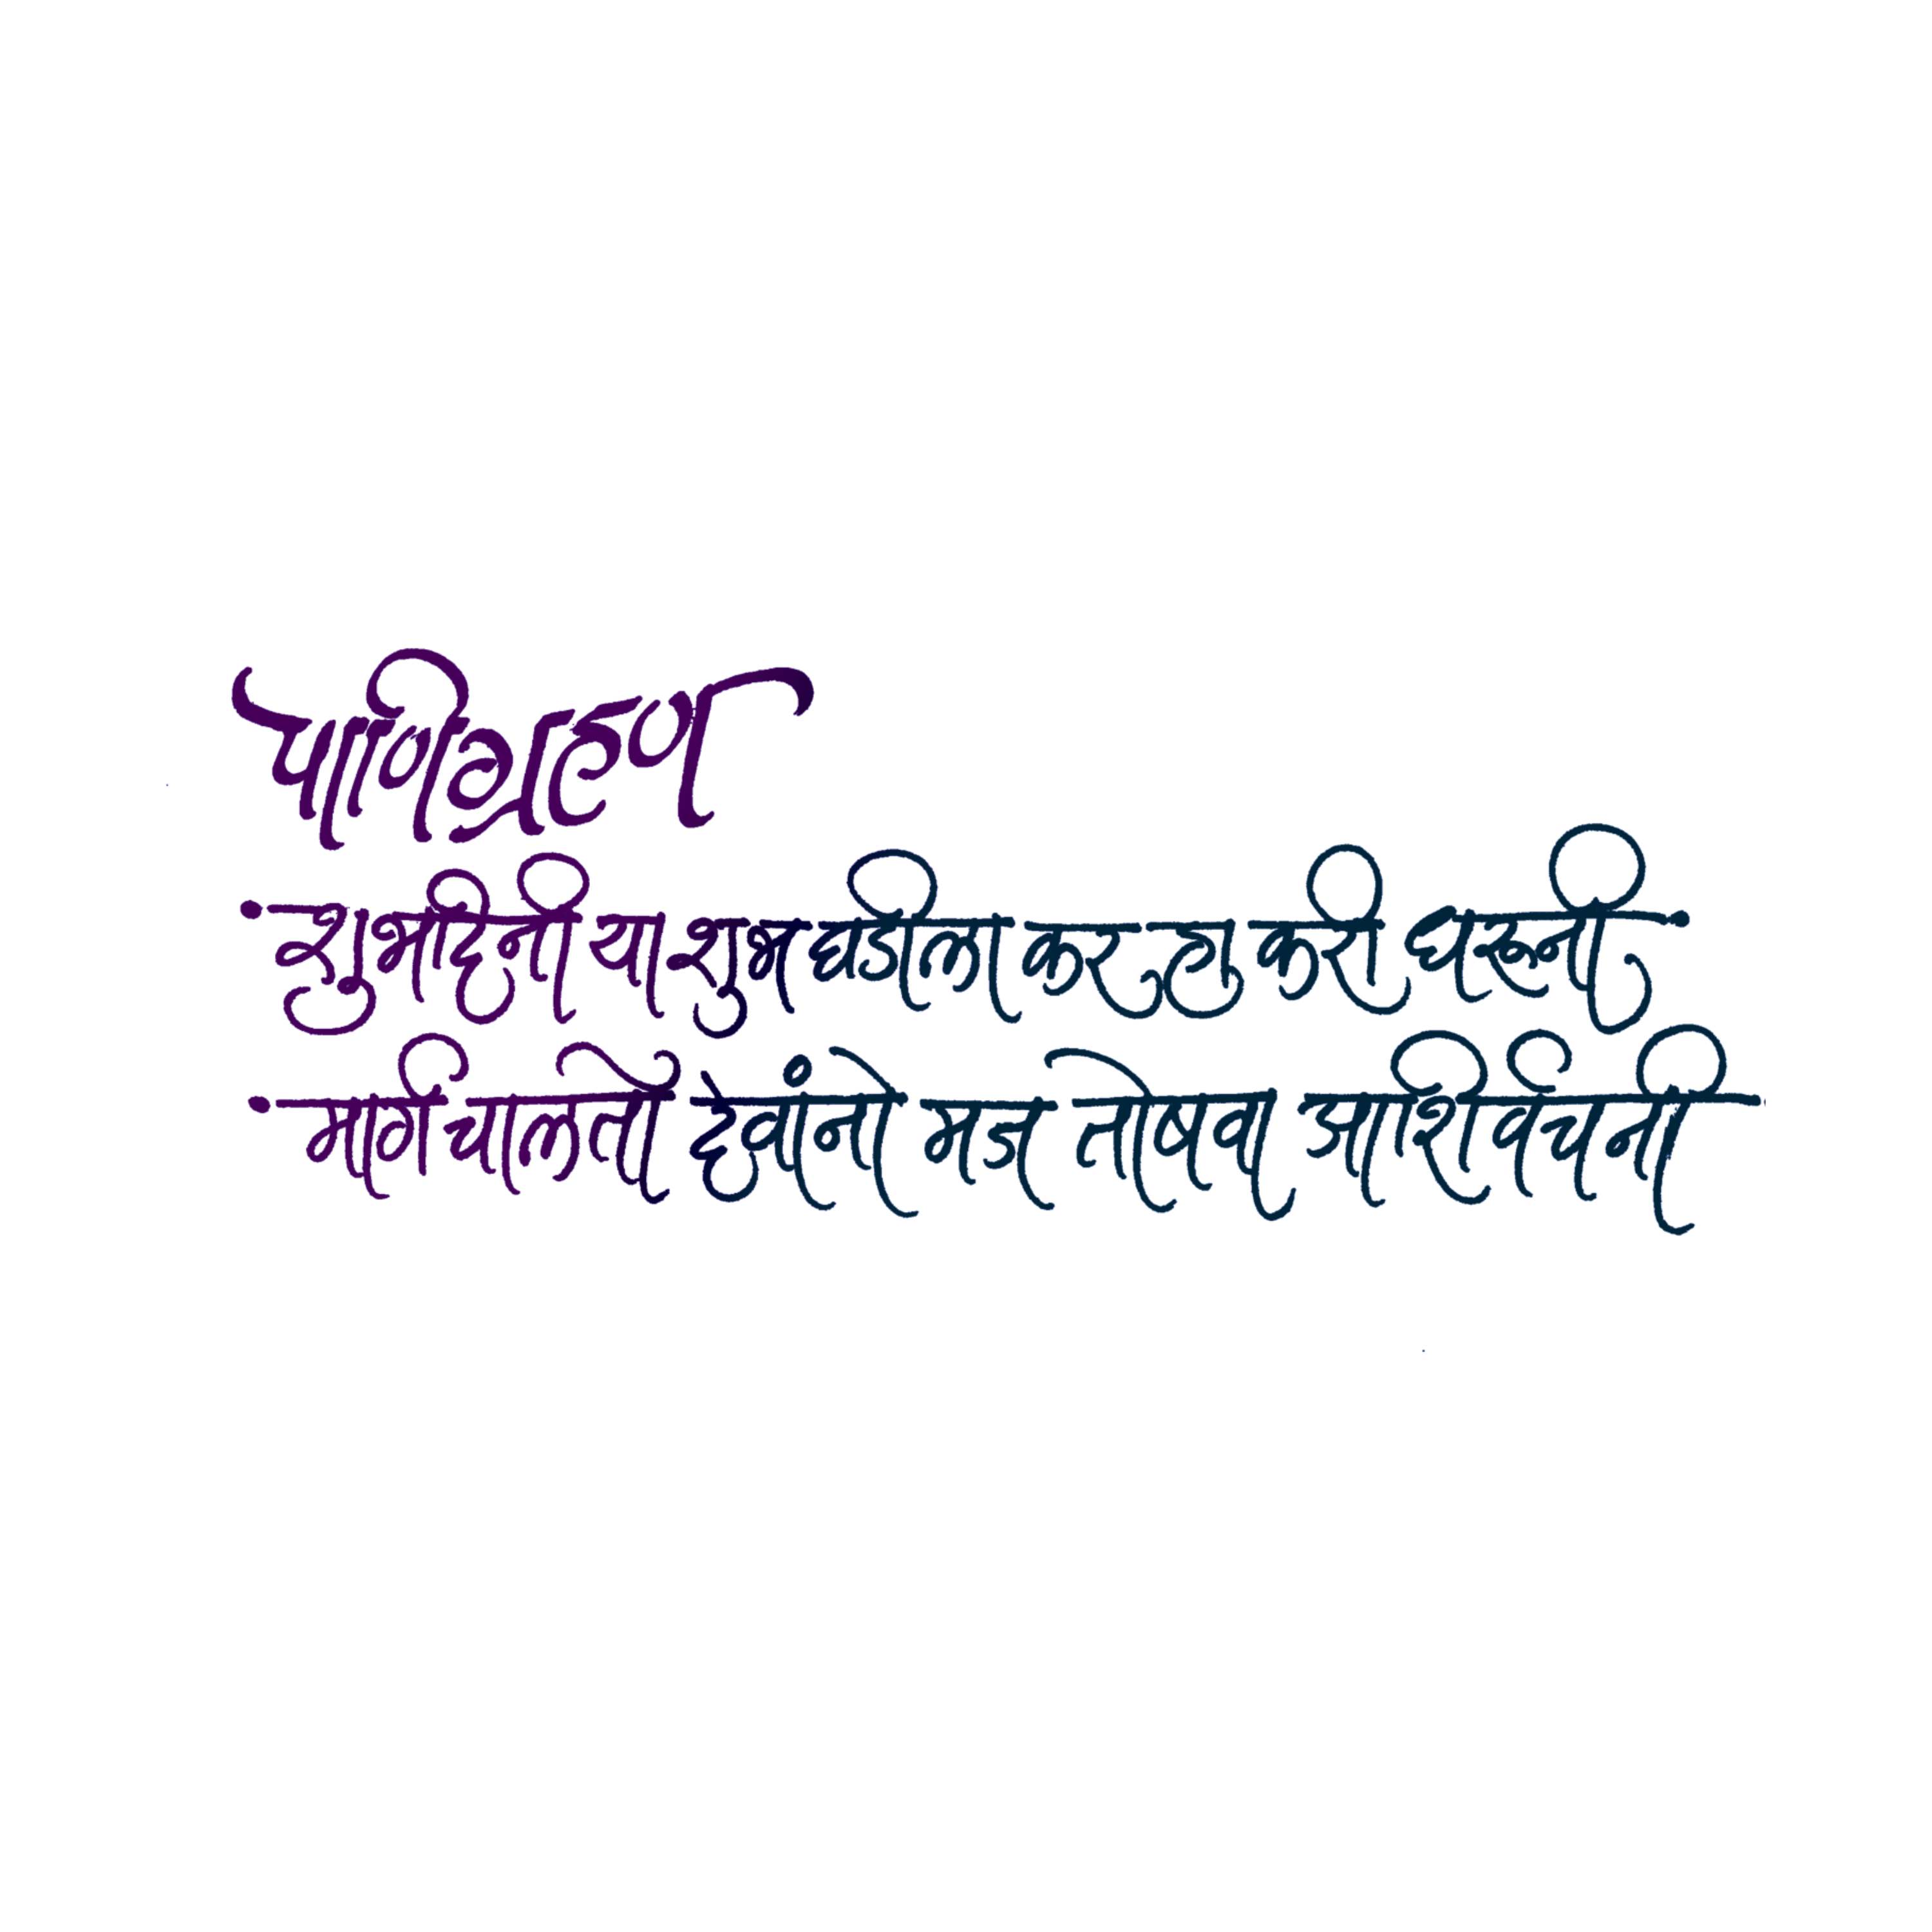 पाणिग्रहण
शुभदिनी या शुभ घडीला कर हा करी धरूनी
मार्ग चालतो देवांनो मज तोषवा आशिर्वचनी